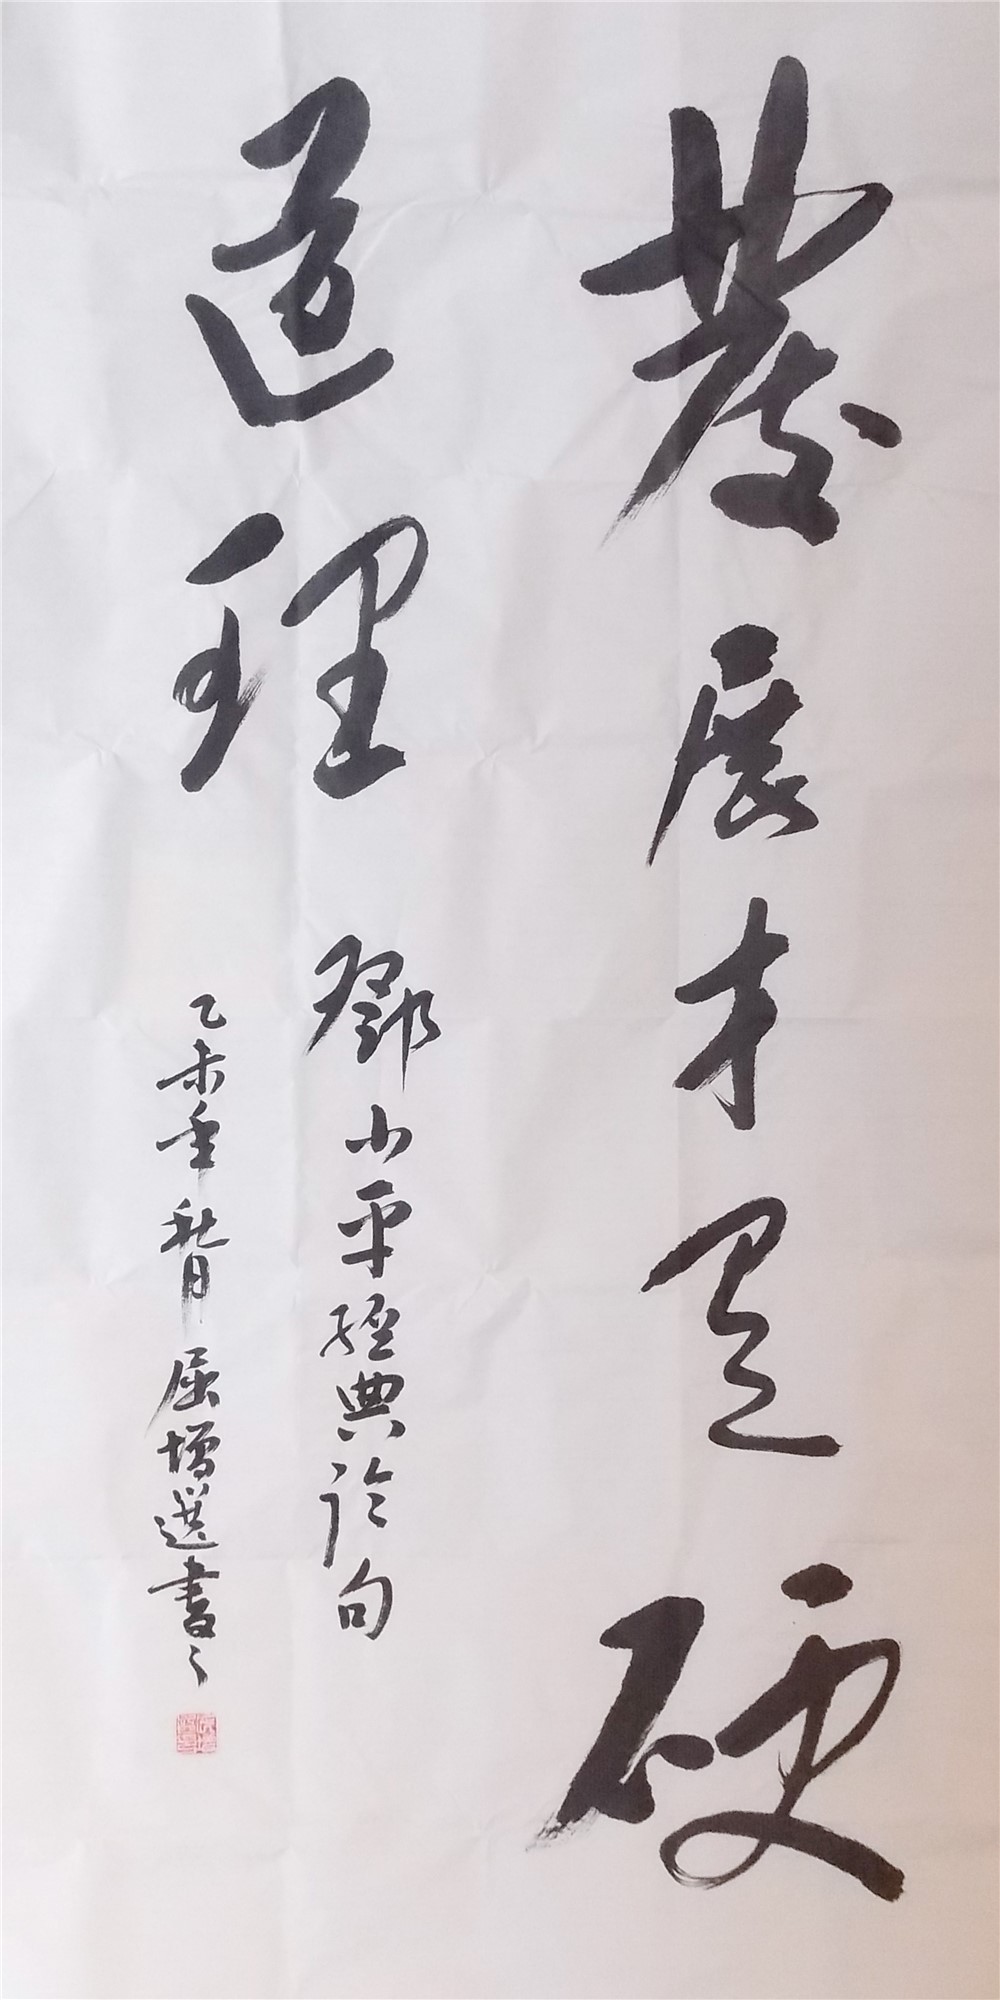 發展才是硬
道理
鄧小平經典語句
乙未年秋月屈增選書